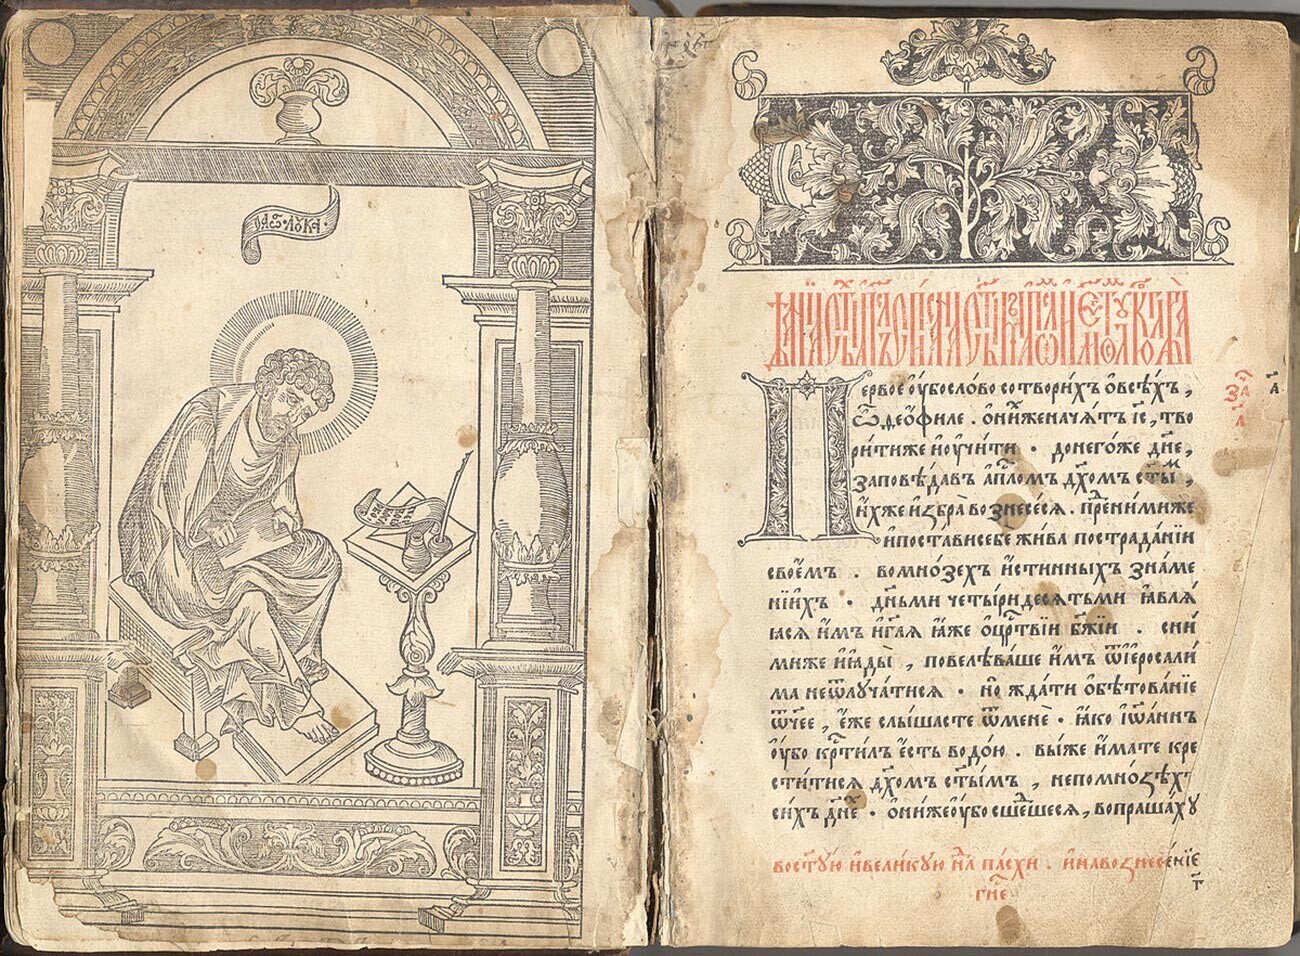 ꙋ҆аⷫ҇ѡⷭ҇ лꙋка
Пеⷬ҇вое ᲂу҆бо слово сотвори́хъ ѡ҆ всѣ́хъ,
ѽ део́филе . ѡ҆ ни́хже нача́тъ і҆с҃, тво
ри́ти же и҆ ᲂу҆чи́ти . до него́же дн҃е,
заповѣ́давъ а҆пⷭ҇ломъ дх҃омъ ст҃ы́мъ,
и҆́хже и҆збра̀ вознесе́сѧ . пред̾ ни́миже
и҆ поста́ви себе жи́ва по страда́нїи
свое́мъ . во мно́зехъ и҆́стинныхъ зна́ме
нїи҆хъ . дн҃ьми четы́ридесѧтьми ꙗ҆влѧ́
ꙗсѧ и҆́мъ и҆ гл҃ѧ ꙗ҆́же ѡ҆ црⷭ҇твїи бж҃їи . с ни́
миже и҆ ꙗ҆ды̀ , повелѣва́ше и҆́мъ ѿ і҆еросали́
ма не ѿлуча́тисѧ . но жда́ти ѡ҆бѣтова́нїе
ѻ҆́ч҃ее , є҆́же слы́шасте ѿ менѐ . ꙗ҆́ко і҆ѡ҆а́ннъ
ᲂу҆́бо крⷭ҇ти́лъ є҆́сть водо́ю . вы́ же и҆́мате кре
сти́тисѧ дх҃омъ ст҃ы́мъ , не по мно́ѕѣхъ
си́хъ дн҃е . ѻ҆ни́ же ᲂу҆́бо сше́дшесѧ, вопраша́хꙋ
во ст҃ꙋ́ю и҆ вели́кꙋю нⷣлѧ па́схи . и҆ на вознесе́нїе
гн҃е